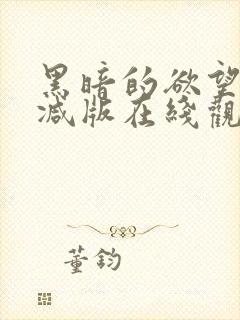 黑暗的欲望
减版在线觀
董鈞